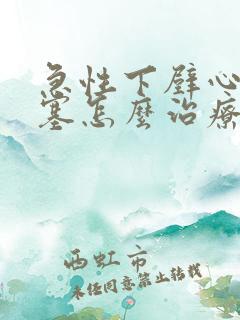 急性下壁心
塞怎麼治療
西虹市
未经同意禁止转载